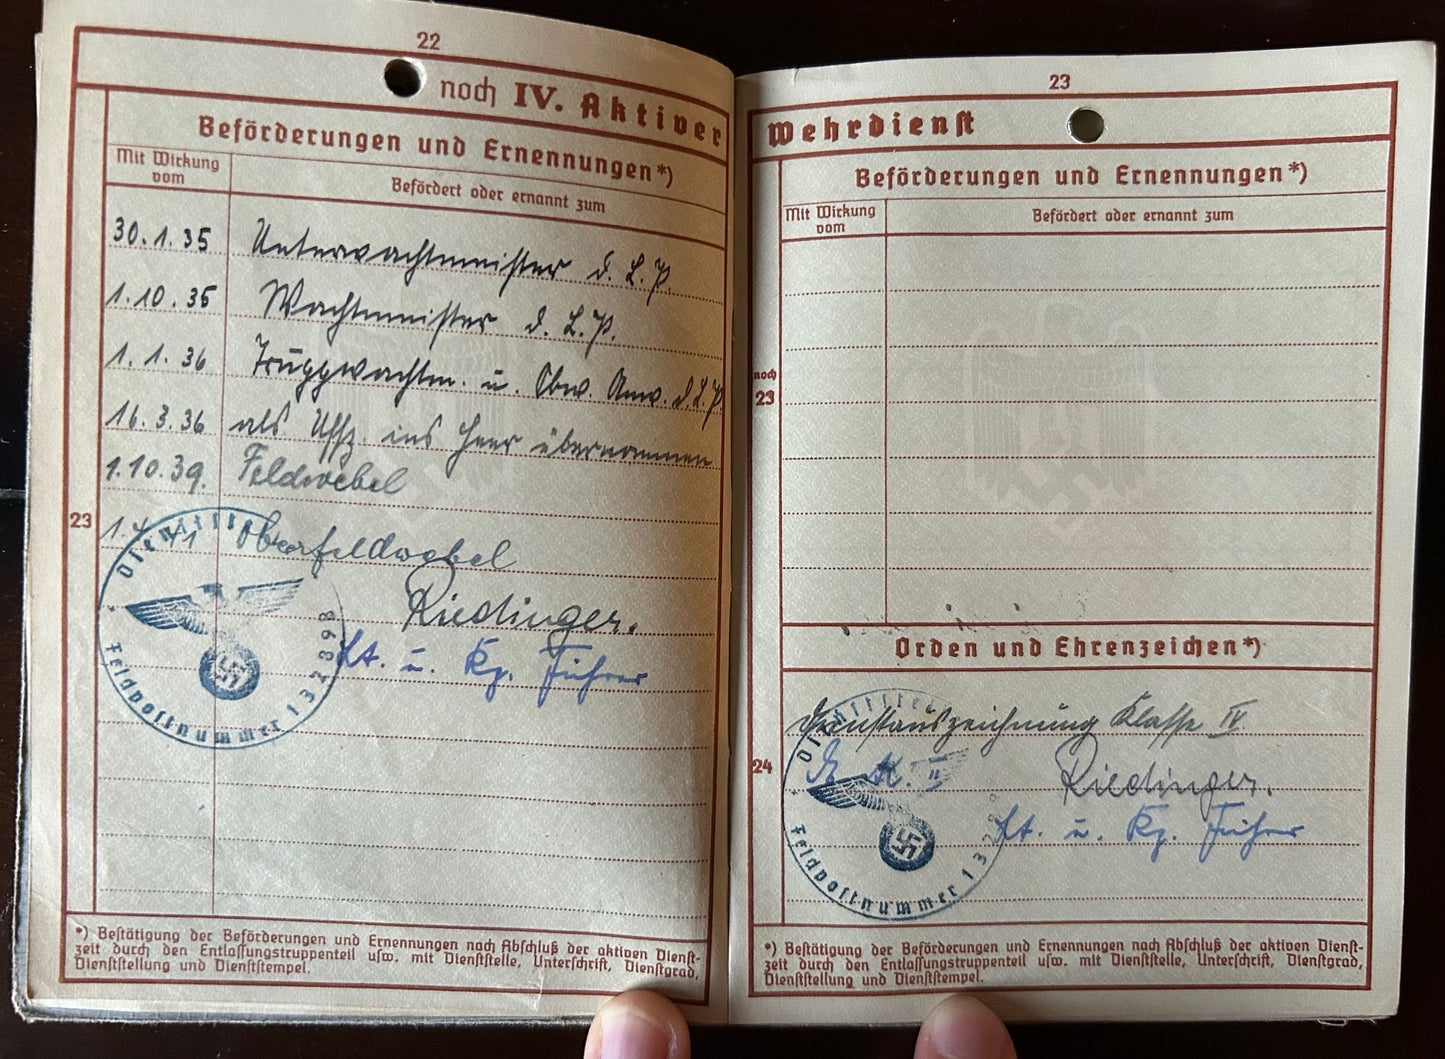 22
noch IV. Aktiver
Beförderungen und Ernennungen*)
Mit Wirkung
vom
Befördert oder ernannt zum
30.1.35 Unterwachtmeister d. L. P.
1.10.35 Wachtmeister d. L. P.
1.1.36 Truppwachtm. u. Obw. Anw. d. L. P.
16.3.36 als Uffz. ins Heer übernommen
1.10.39. Feldwebel
23
41 Oberfeldwebel
Riedinger.
Lt. u. Kp. Führer
Dienststelle
Feldpostnummer 13289B
*) Bestätigung der Beförderungen und Ernennungen nach Abschluß der aktiven Dienst-
zeit durch den Entlassungstruppenteil usw. mit Dienststelle, Unterschrift, Dienstgrad,
Dienststellung und Dienststempel.
23
Wehrdienst
Beförderungen und Ernennungen*)
Mit Wirkung
vom
Befördert oder ernannt zum
noch
23
Orden und Ehrenzeichen*)
Dienstauszeichnung Klasse IV
24
K. II
Riedinger.
Lt. u. Kp. Führer
Dienststelle
Feldpostnummer 1328
*) Bestätigung der Beförderungen und Ernennungen nach Abschluß der aktiven Dienst-
zeit durch den Entlassungstruppenteil usw. mit Dienststelle, Unterschrift, Dienstgrad,
Dienststellung und Dienststempel.